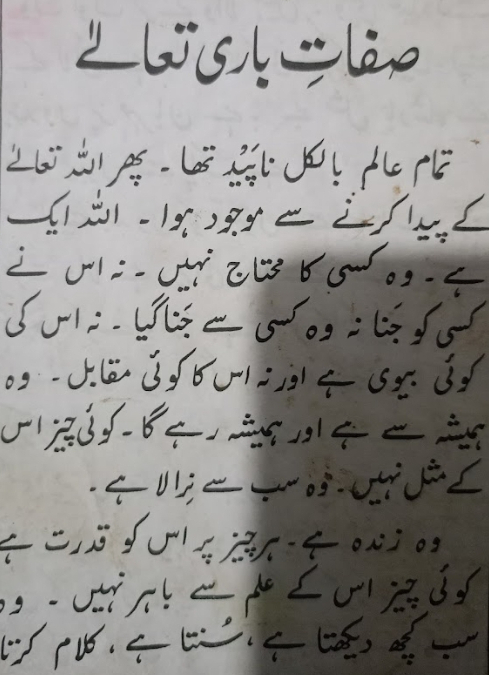 صفاتِ باری تعالےٰ
تمام عالم بالکل ناپَیْد تھا۔ پھر اللہ تعالےٰ
کے پیدا کرنے سے موجود ہوا۔ اللہ ایک
ہے۔ وہ کسی کا محتاج نہیں۔ نہ اس نے
کسی کو جَنا نہ وہ کسی سے جَنا گیا۔ نہ اس کی
کوئی بیوی ہے اور نہ اس کا کوئی مقابل۔ وہ
ہمیشہ سے ہے اور ہمیشہ رہے گا۔ کوئی چیز اس
کے مثل نہیں۔ وہ سب سے نِرالا ہے۔
وہ زندہ ہے۔ ہر چیز پر اس کو قدرت ہے
کوئی چیز اس کے علم سے باہر نہیں۔ وہ
سب کچھ دیکھتا ہے، سُنتا ہے، کلام کرتا